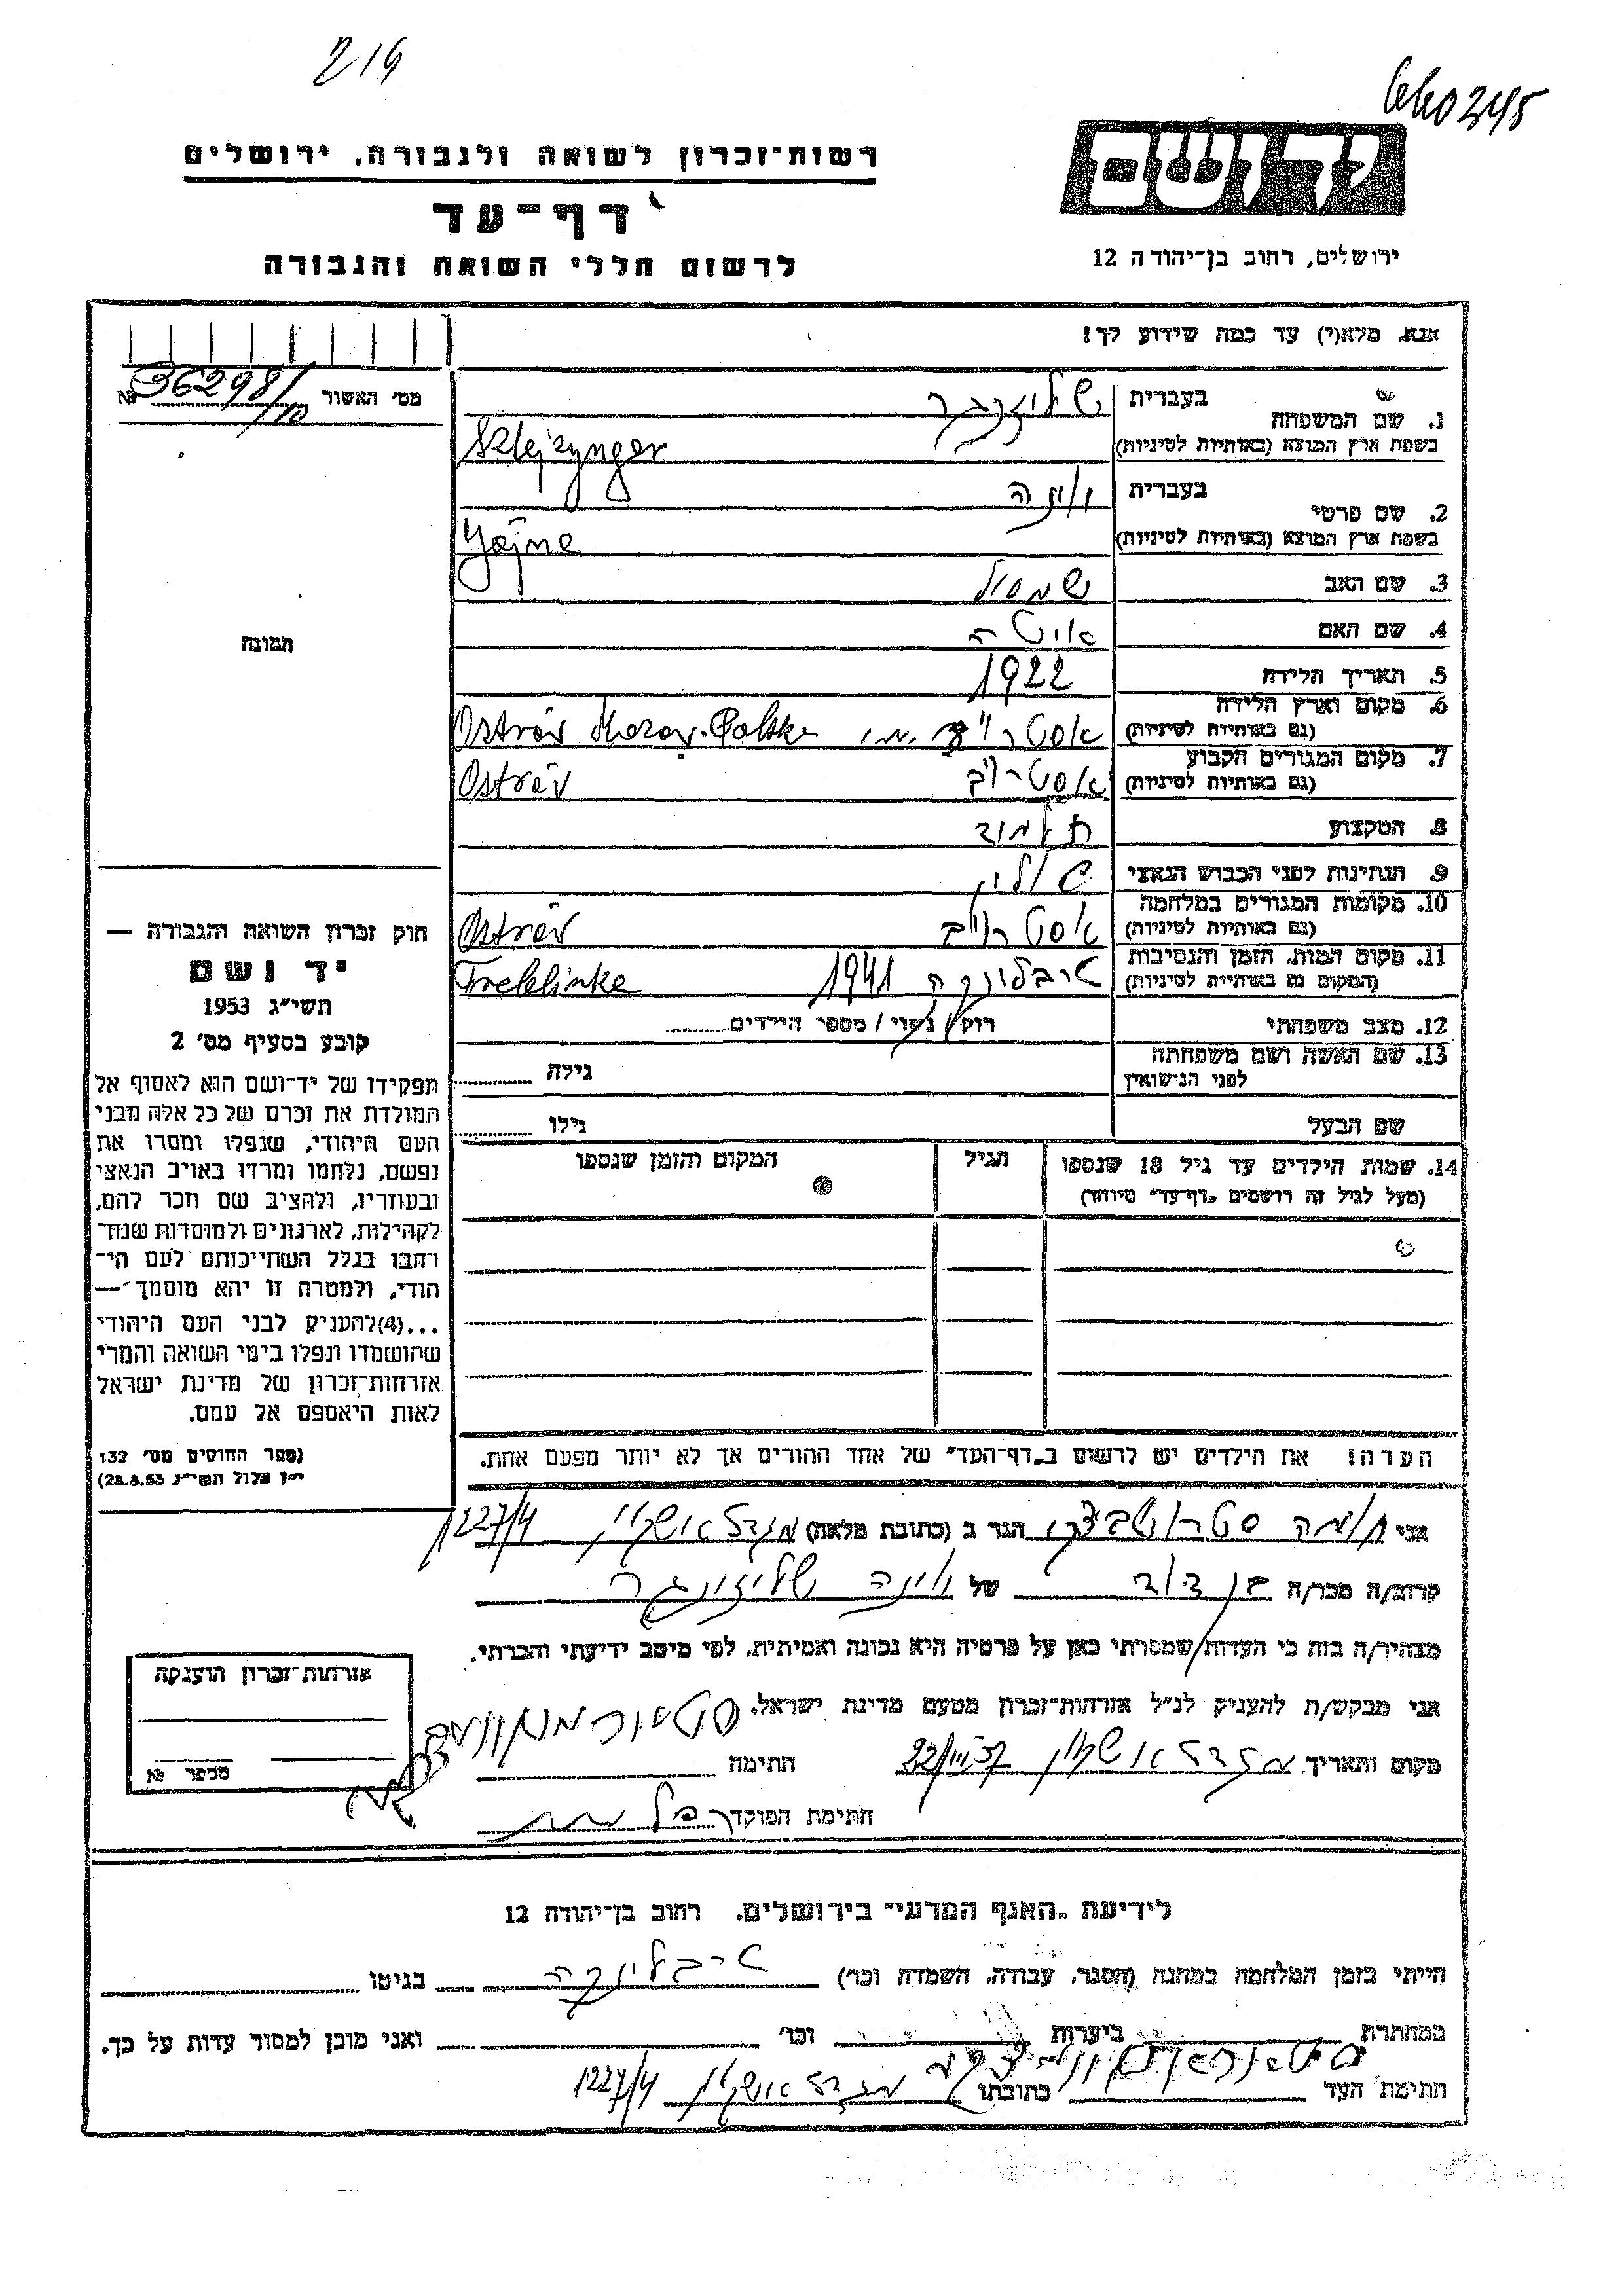 214
660245
יד ושם
רשות־זכרון לשואה ולגבורה, ירושלים
דף־עד
לרשום חללי השואה והגבורה
ירושלים, רחוב בן־יהודה 12
אנא, מלא(י) עד כמה שידוע לך!
מס׳ האשור 36298/10 №
1. שם המשפחה בעברית שליזינגר
בשפת ארץ המוצא (באותיות לטיניות) Szlejzynger
2. שם פרטי בעברית
בשפת ארץ המוצא (באותיות לטיניות)
3. שם האב
4. שם האם
5. תאריך הלידה 1922
6. מקום וארץ הלידה
(גם באותיות לטיניות) Ostrów Mazow. Polska
7. מקום המגורים הקבוע
(גם באותיות לטיניות) אוסטרוב Ostrów
8. המקצוע תלמוד
9. הנתינות לפני הכבוש הנאצי פולין
10. מקומות המגורים במלחמה
(גם באותיות לטיניות) אוסטרוב Ostrów
11. מקום המות, הזמן והנסיבות
(המקום גם באותיות לטיניות) טיבלונקה 1941 Treblinka
12. מצב משפחתי רווק / נשוי / מספר הילדים
13. שם האשה ושם משפחתה
לפני הנישואין גילה
שם הבעל גילו
14. שמות הילדים עד גיל 18 שנספו הגיל המקום והזמן שנספו
(מעל לגיל זה רושמים „דף־עד״ מיוחד)
הערה! את הילדים יש לרשום ב„דף־העד״ של אחד ההורים אך לא יותר מפעם אחת.
תמונה
חוק זכרון השואה והגבורה —
יד ושם
תשי״ג 1953
קובע בסעיף מס׳ 2
תפקידו של יד־ושם הוא לאסוף אל
המולדת את זכרם של כל אלה מבני
העם היהודי, שנפלו ומסרו את
נפשם, נלחמו ומרדו באויב הנאצי
ובעוזריו, ולהציב שם וזכר להם,
לקהילות, לארגונים ולמוסדות שנח־
רבו בגלל השתייכותם לעם הי־
הודי, ולמטרה זו יהא מוסמך —
...(4)להעניק לבני העם היהודי
שהושמדו ונפלו בימי השואה והמרי
אזרחות־זכרון של מדינת ישראל
לאות היאספם אל עמם.
(ספר החוקים מס׳ 132
י״ז אלול תשי״ג 28.8.53)
אני הגר ב (כתובת מלאה) מגדל אשקלון 1227/4
קרוב/ה מכר/ה בן דוד של שליזינגר
מצהיר/ה בזה כי העדות שמסרתי כאן על פרטיה היא נכונה ואמיתית, לפי מיטב ידיעתי והכרתי.
אני מבקש/ת להעניק לנ״ל אזרחות־זכרון מטעם מדינת ישראל.
מקום ותאריך מגדל אשקלון 22/III 57 חתימה
חתימת הפוקד
אזרחות־זכרון הוענקה
מספר №
לידיעת „האגף המדעי״ בירושלים. רחוב בן־יהודה 12
הייתי בזמן המלחמה במחנה (הסגר, עבודה, השמדה וכו׳) טיבלינקה בגיטו
במחתרת ביערות וכו׳ ואני מוכן למסור עדות על כך.
חתימת העד כתובתו מגדל אשקלון 1227/4